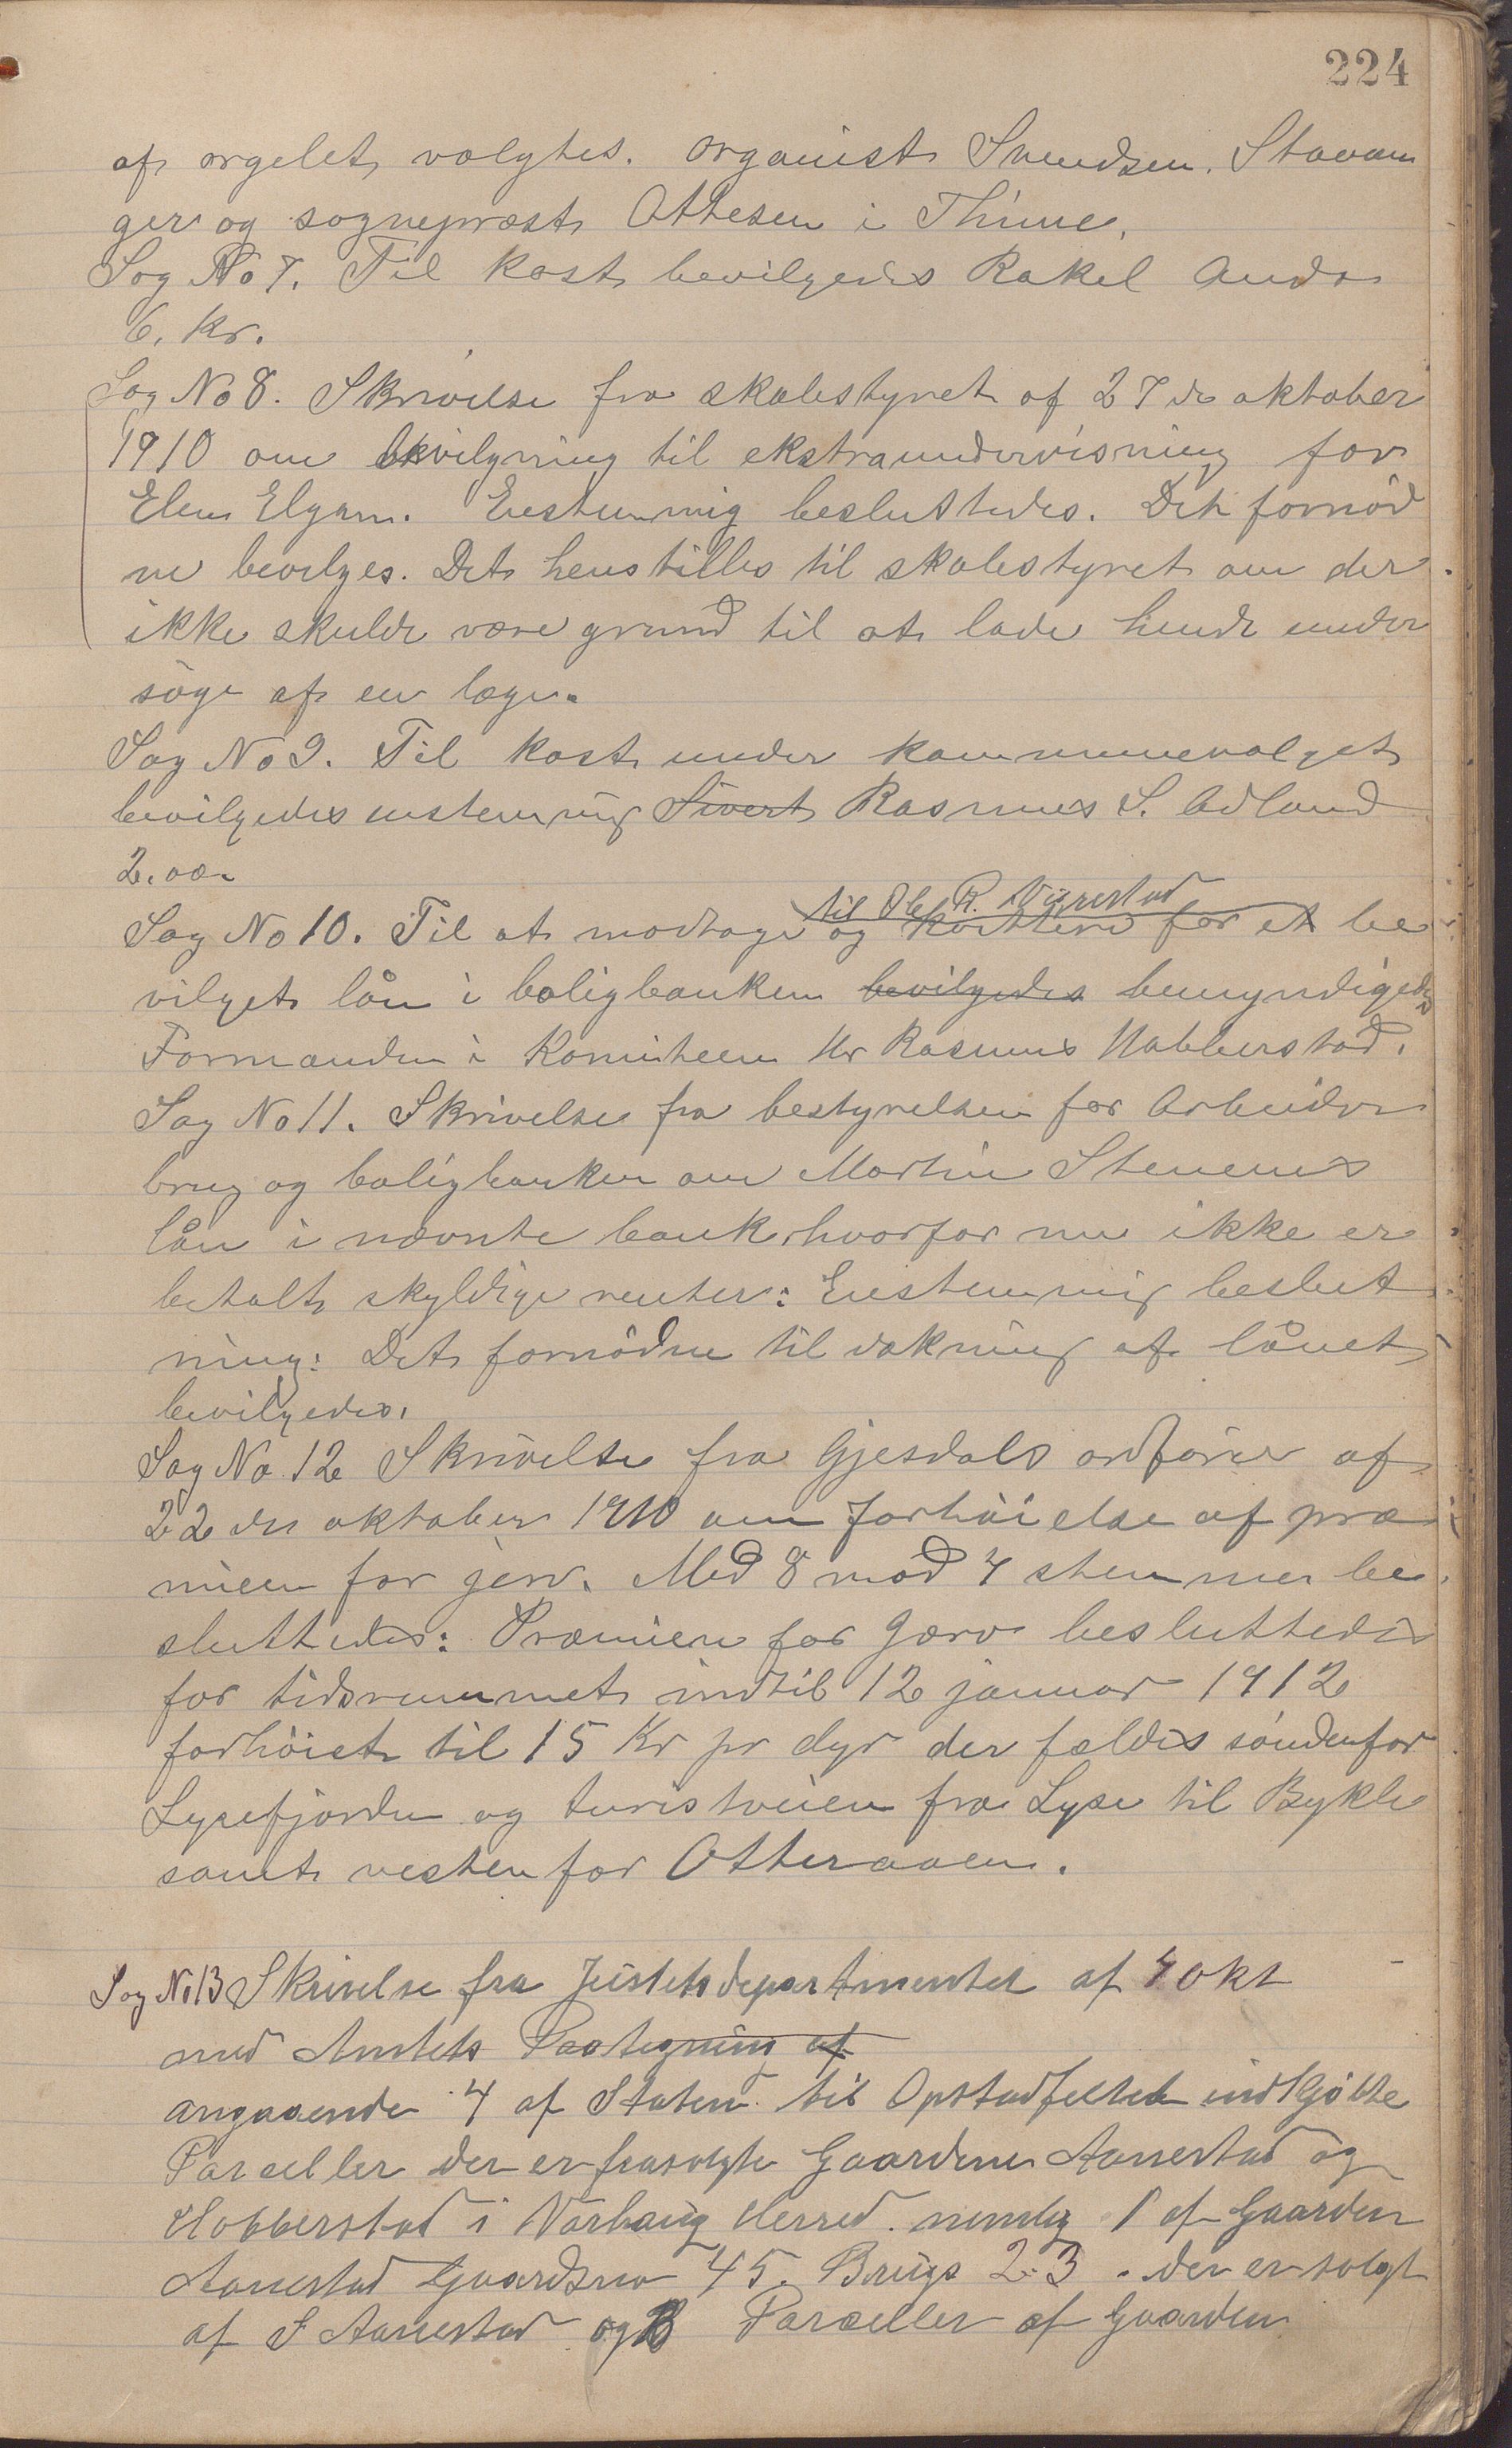 224
af orgelet valgtes. organist Svendsen. Stavan
ger og sogneprest Ottesen i Thime.
Sag No 7. Til kost bevilgedes Rakel Auda
6. kr.
Sag No 8. Skrivelse fra skolestyret af 27de oktober
1910 om bevilgning til ekstraundervisning for
Elen Elgan. Enstemmig besluttedes. Det fornød
ne bevilges. Det henstilles til skolestyret om der
ikke skulde være grund til at lade hende under
søge af en læge.
Sag No 9. Til kost under kommunevalget
bevilgedes enstemmig Sivert Rasmus S. Adland
2.00.
til Ole R. Vigrestad
Sag No 10. Til at modtage og for et be
vilget lån i boligbanken bevilgedes bemyndigedes
Formanden i Komiteen Hr Rasmus Habberstad.
Sag No 11. Skrivelse fra bestyrelsen for Arbeider
brug og boligbanken om Martin Stenens
lån i nævnte bank, hvorfor nu ikke er
betalt skyldige renter: Enstemmig beslut
ning: Det fornødne til dækning af lånet
bevilgedes.
Sag No 12 Skrivelse fra Gjesdals ordfører af
22de oktober 1910 om forhøielse af præ
mien for jerv. Med 8 mod 4 stemmer be
sluttedes: Præmien for Jærv besluttedes
for tidsrummet indtil 12 januar 1912
forhøiet til 15 Kr pr dyr der fældes søndenfor
Lysefjorden og turistveien fra Lyse til Bykle
samt vestenfor Otteraaen.
Sag No 13 Skrivelse fra Justitsdepartmentet af 4 okt
med Amtets Paategning af
angaaende 4 af Staten til Opstadfeltet indkjøbte
Parceller der er frasolgte Gaardene Aanestad og
Hobberstad i Nærbøig Herred. nemlig 1 af Gaarden
Aanestad Gaardsno 45. Brugs 2.3. der er solgt
af S Aanestad og 3 Parceller af Gaarden